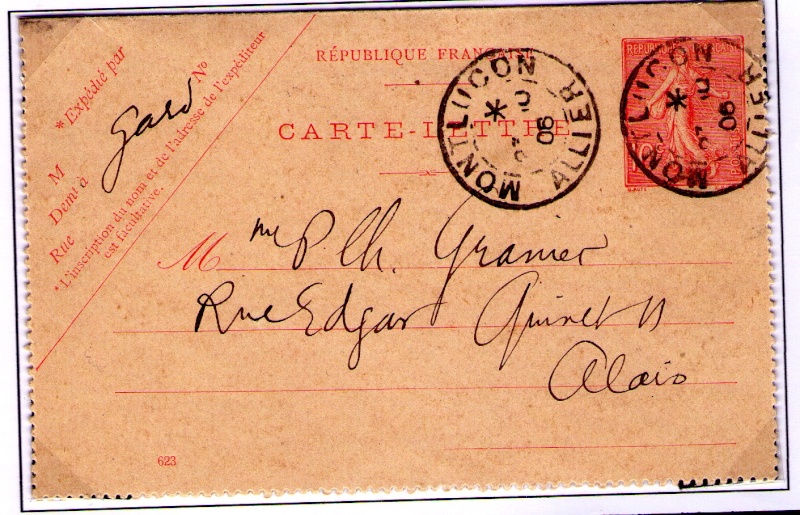 * Expédié par
M
Demt à
Rue
N°
*L'inscription du nom et de l'adresse de l'expéditeur
est facultative.
Gard
RÉPUBLIQUE FRANÇAISE
CARTE-LETTRE
MONTLUCON
ALLIER
06
REPUBLIQUE FRANÇAISE
10c
POSTES
MONTLUCON
ALLIER
06
Mme P. Ch. Gramer
Rue Edgar Quinet 11
Alais
623